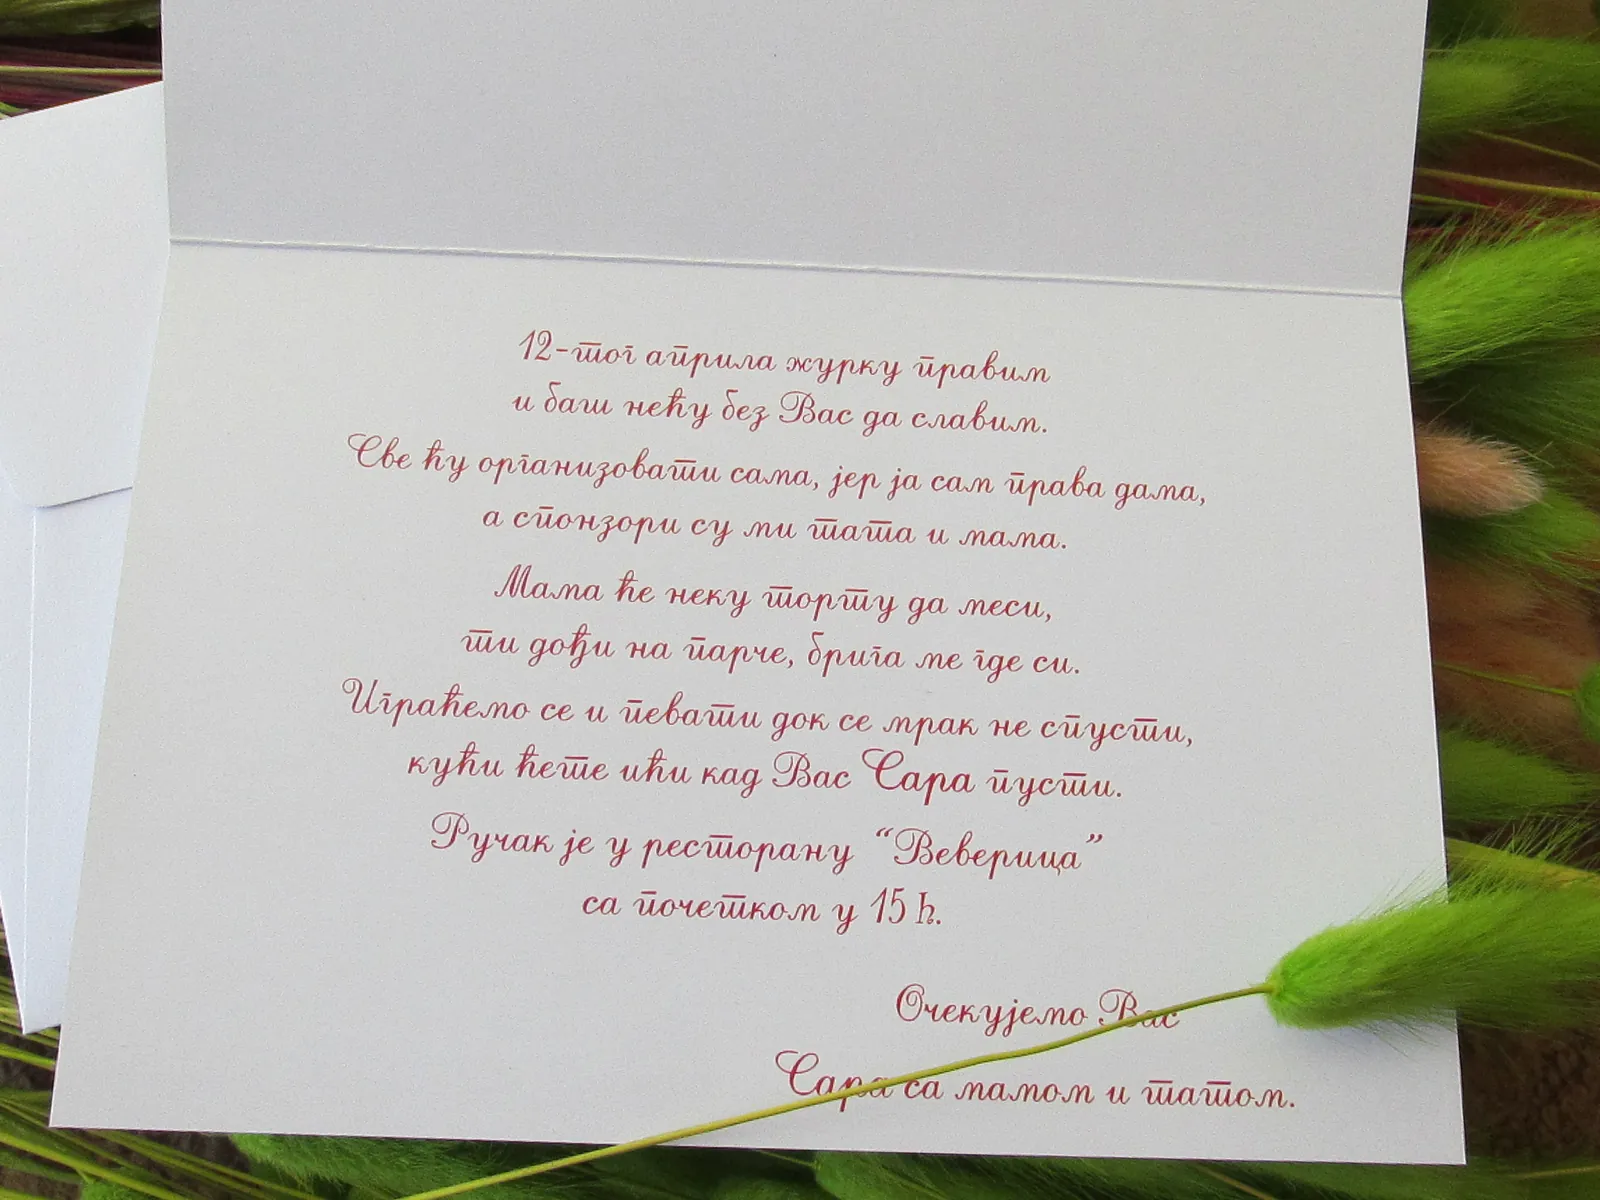 12-тог априла журку правим
и баш нећу без Вас да славим.
Све ћу организовати сама, јер ја сам права дама,
а спонзори су ми тата и мама.
Мама ће неку торту да меси,
ти дођи на парче, брига ме где си.
Играћемо се и певати док се мрак не спусти,
кући ћете ићи кад Вас Сара пусти.
Ручак је у ресторану “Веверица”
са почетком у 15 h.
Очекујемо Вас
Сара са мамом и татом.